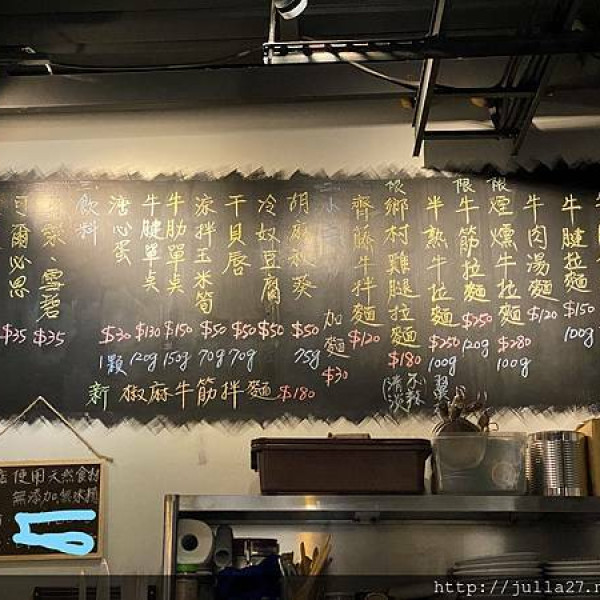 牛腱拉麵 $150 100g
牛肉湯麵 $120
限 煙燻牛拉麵 $280 100g
限 牛筋拉麵 $250 120g
半熟牛拉麵 $250 100g
限 鄉村雞腿拉麵 $180
齊筋牛拌麵 $120
加麵 $30
胡麻秋葵 $50 75g
冷奴豆腐 $50
干貝唇 $50 70g
涼拌玉米筍 $50 70g
牛肋單桌 $150 150g
牛腱單桌 $130 120g
溏心蛋 $30 1顆
三、飲料
雪碧 $35
可爾必思 $35
新 椒麻牛筋拌麵 $180
使用天然食材
無添加無味精
http://julla27.